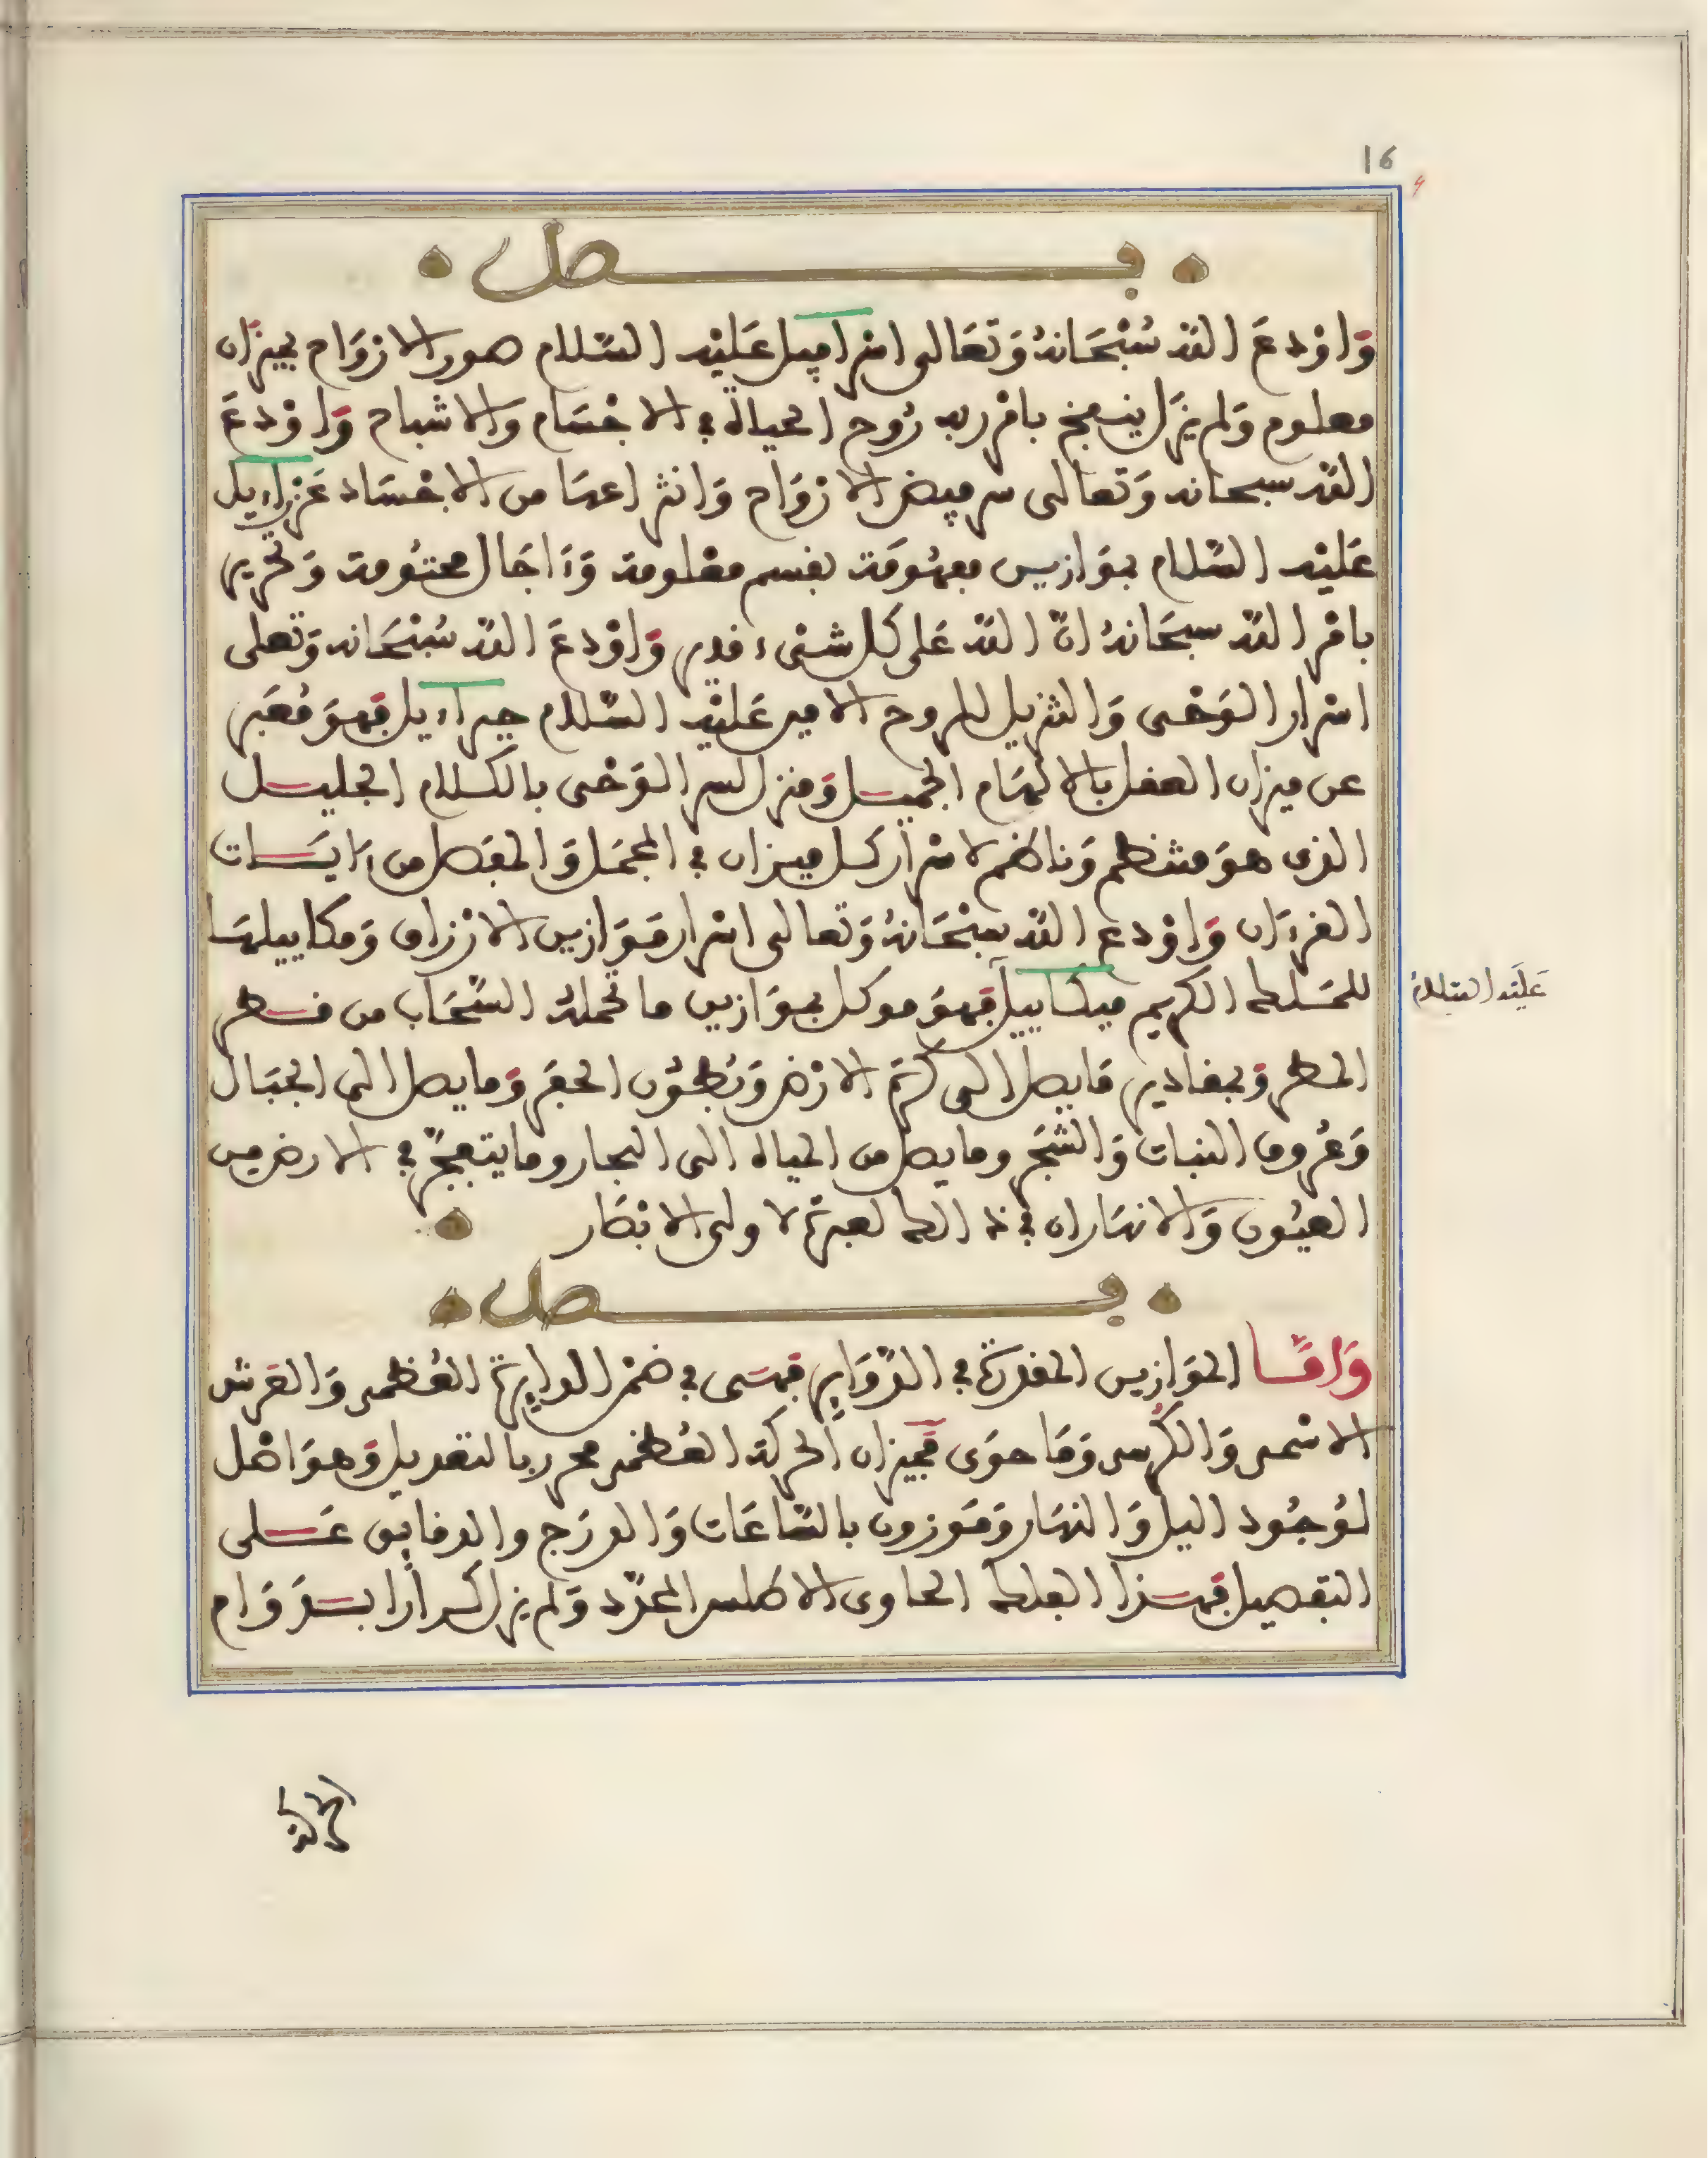 16
فصل
وَاوْدعَ اللهُ سُبْحَانهُ وَتَعَالى اسْرافيل عَليْه السّلام صور الارْوَاح بميزَان
معلوم وَلم يزَل ينفخ بامْر ربه رُوح الحياة في الاجْسَام والاشباح وَاوْدعَ
الله سبحانه وَتعالى سر قبض الارْوَاح وَانتزاعهَا من الاجْسَاد عَزراءيل
عَليْه السّلام بموَازين مفهُومَة بقسم معْلومة وَءَاجَال محتُومة وَتحْرير
بامْر الله سبحَانهُ انّ الله عَلى كل شىْء قدير وَاوْدعَ الله سُبْحَانه وَتعلى
اسْرار الوَحْى وَالتنزيل للروح الامين عَليْه السّلام جبراءيل فهوَ مُعَبر
عن ميزان العقل بالالهَام الجميل وَمنزل لسر الوَحْى بالكلام الجليل
الذى هوَ منظم وَناظم لاسْرار كل ميزان في المجمَل وَالمفصَل من ءايَات
القرءَان وَاوْدع الله سبْحَانهُ وَتعالى اسْرار مَوَازين الارْزاق وَمكاييلهَا
للمَلك الكريم ميكاييل فهوَ موكل بموَازين ما تحملهُ السّحَاب من قطر
عَليْه السّلامُ
المطر وَبمقادير مَا يصل الى كرَة الارْض وَبُطُون الحفَر وَما يصل الى الجبَال
وَعُروق النبات وَالشجَر وما يصل من المياه الى البحار وما يتفجّر في الارض من
العيُون وَالانهَار ان في ذالك لعبرة لاولى الابْصَار
فصل
وَامَّا الموَازين المقدرَة في الدّوَاير فهى في ضمْن الدايرة العُظمى وَالعَرش
الاسْمى وَالكُرسى وَمَا حوَى فميزان الحركة العُظمى محرر بالتعديل وَهوَ اصْل
لوُجُود اليل وَالنهَار وَمَوزون بالسّاعَات وَالدرَج والدقايق عَلى
التفصيل فهذا الفلك الحاوى الاطلس المحدّد وَلم يزل كرارا بدَوَام
الحركة